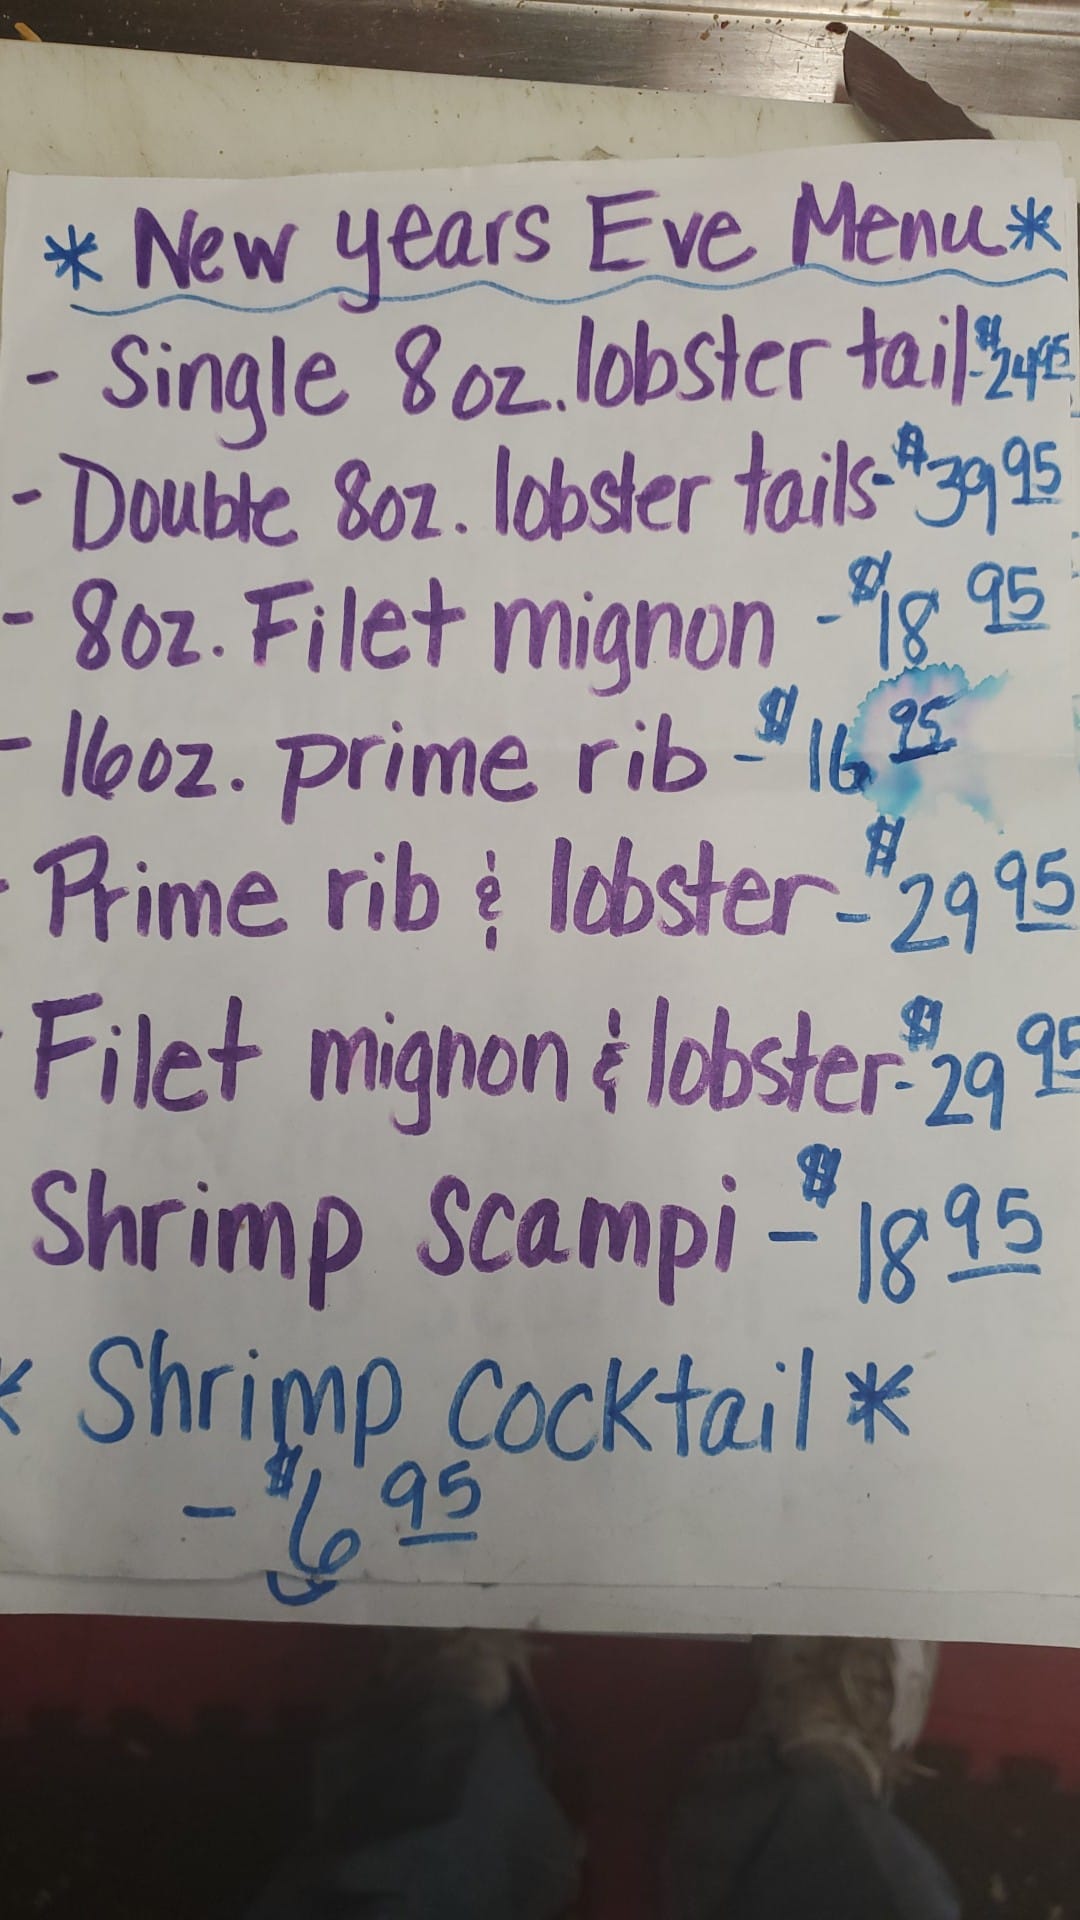 * New years Eve Menu *
- Single 8oz. lobster tail - $24 95
- Double 8oz. lobster tails - $39 95
- 8oz. Filet mignon - $18 95
- 16oz. prime rib - $16 95
- Prime rib & lobster - $29 95
- Filet mignon & lobster - $29 95
Shrimp scampi - $18 95
* Shrimp cocktail *
- $6 95